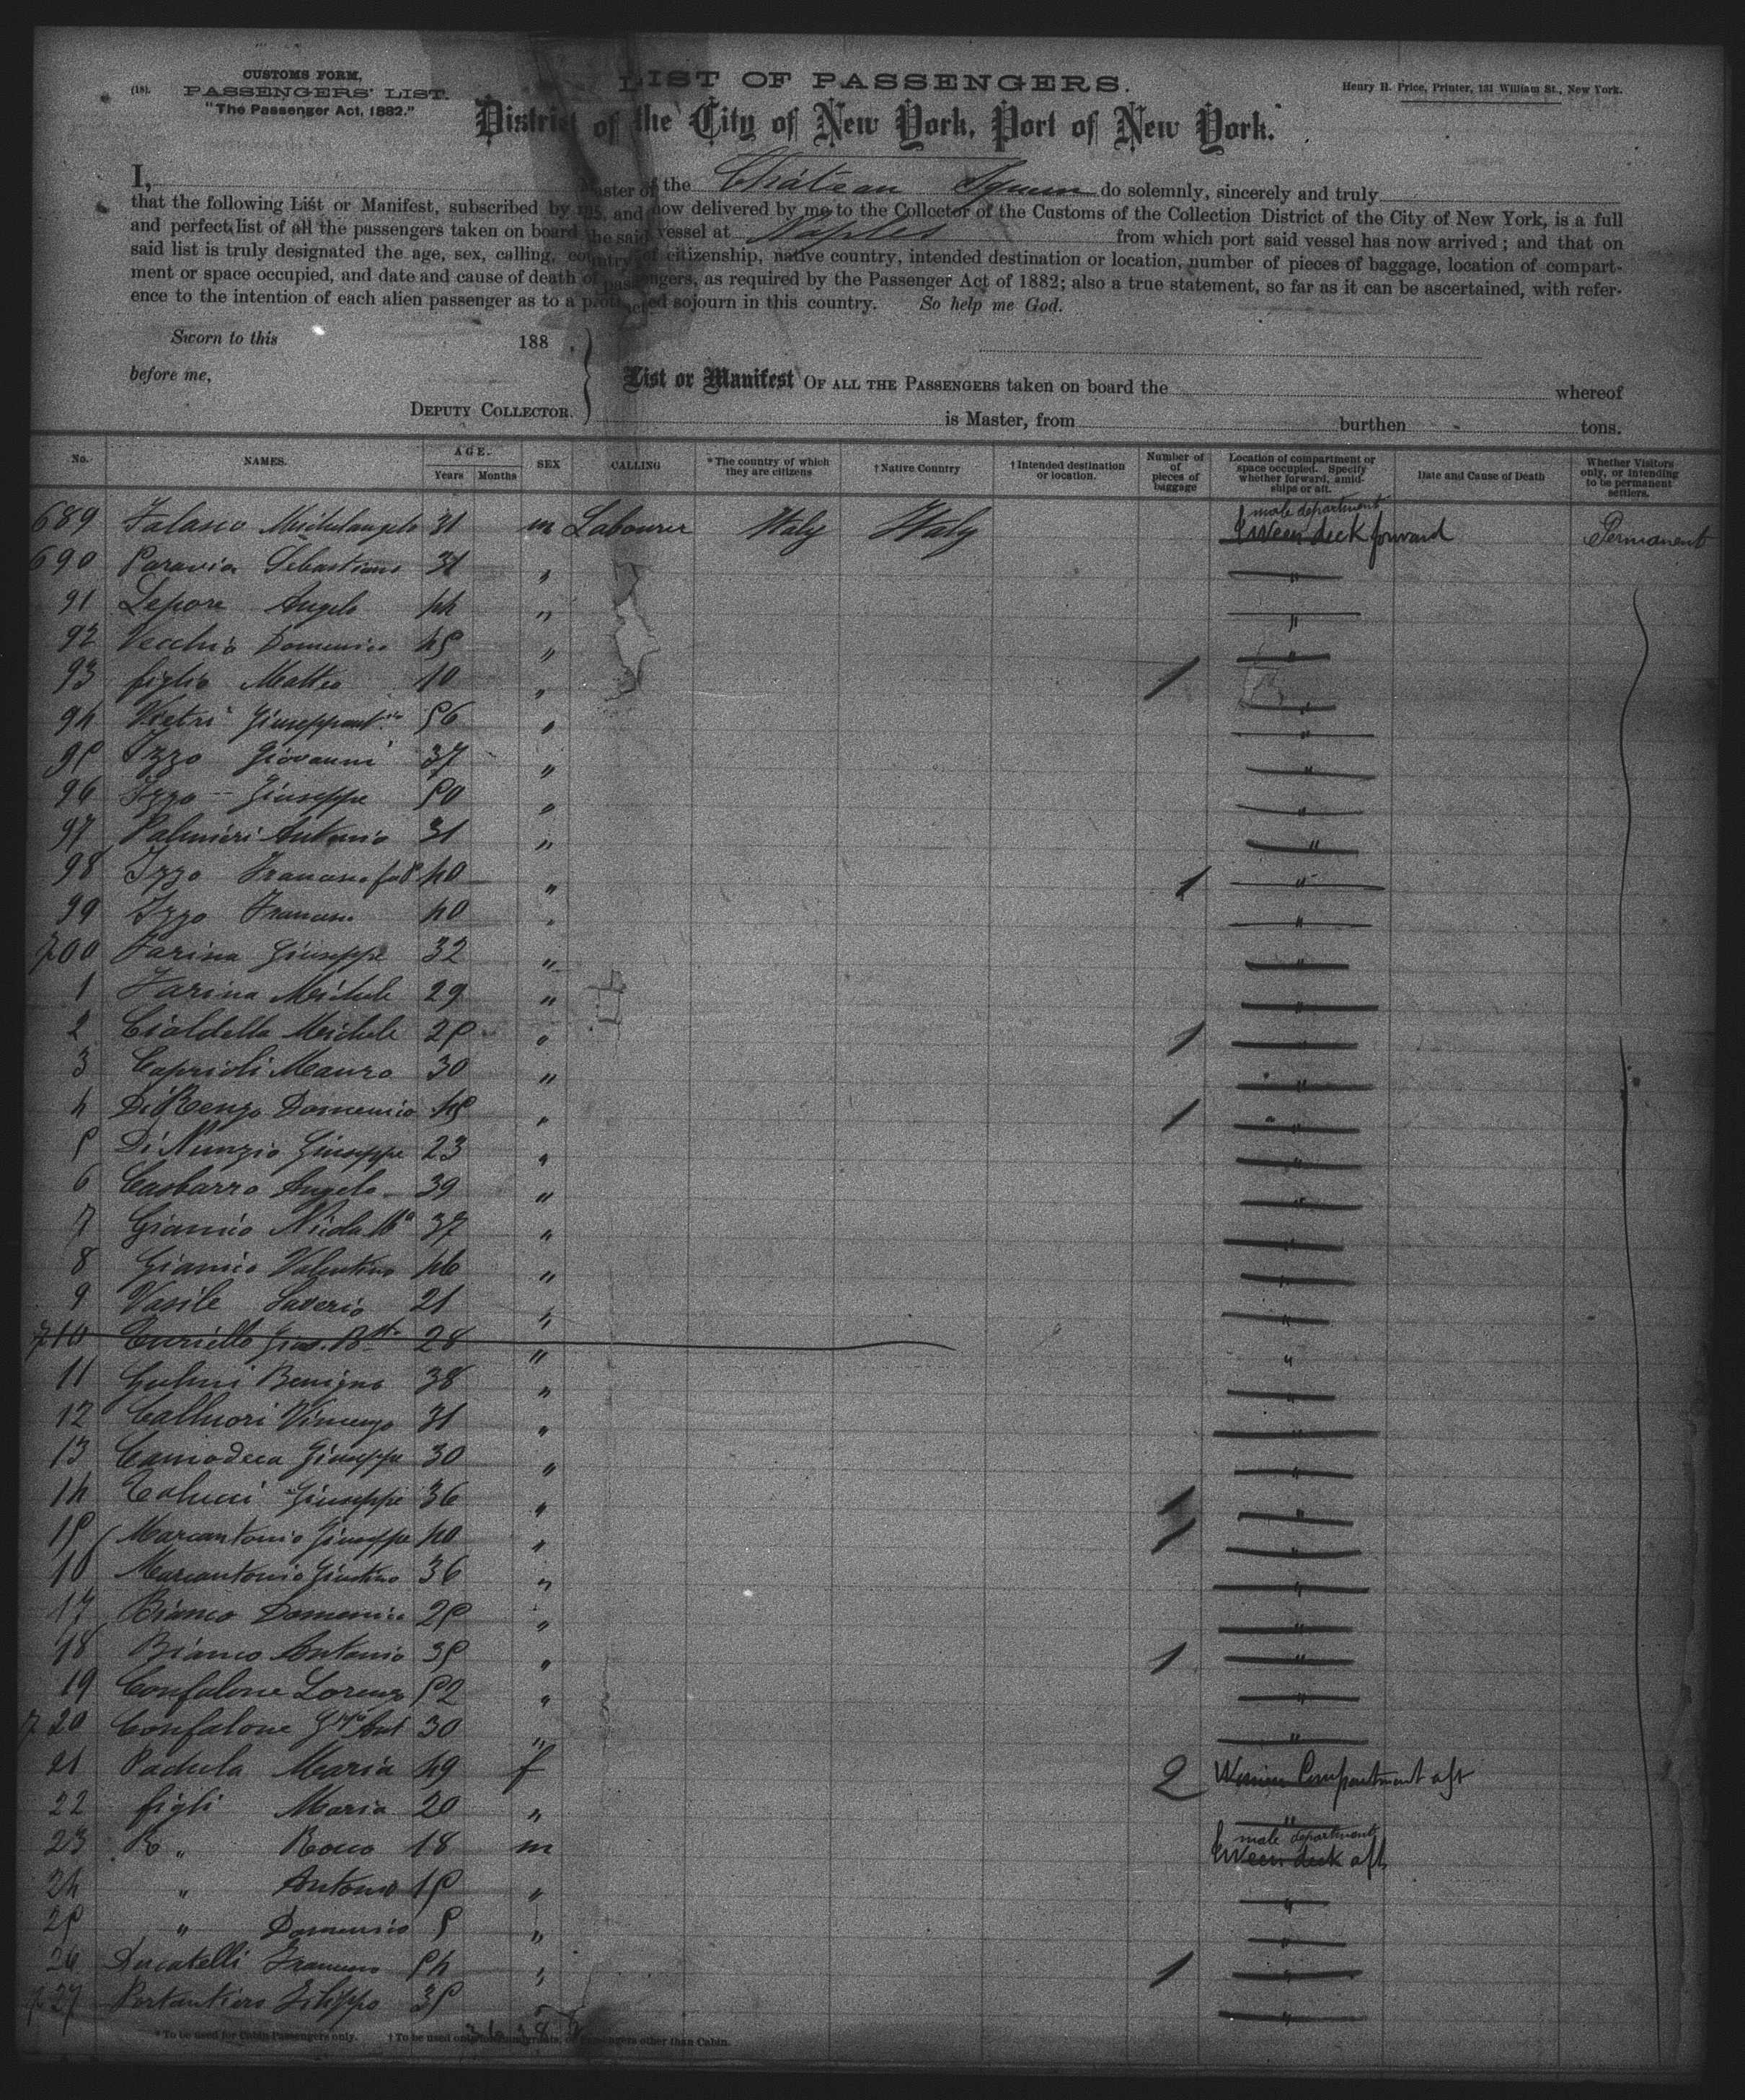 (18).
CUSTOMS FORM,
PASSENGERS' LIST.
"The Passenger Act, 1882."
LIST OF PASSENGERS.
Henry H. Price, Printer, 131 William St., New York.
District of the City of New York, Port of New York.
I, Master of the Château Yquem do solemnly, sincerely and truly
that the following List or Manifest, subscribed by me, and now delivered by me to the Collector of the Customs of the Collection District of the City of New York, is a full
and perfect list of all the passengers taken on board the said vessel at Naples from which port said vessel has now arrived; and that on
said list is truly designated the age, sex, calling, country of citizenship, native country, intended destination or location, number of pieces of baggage, location of compart-
ment or space occupied, and date and cause of death of passengers, as required by the Passenger Act of 1882; also a true statement, so far as it can be ascertained, with refer-
ence to the intention of each alien passenger as to a protracted sojourn in this country. So help me God.
Sworn to this 188 .
before me,
DEPUTY COLLECTOR.
List or Manifest OF ALL THE PASSENGERS taken on board the whereof
is Master, from burthen tons.
No. NAMES. AGE. Years Months SEX CALLING *The country of which they are citizens †Native Country †Intended destination or location. Number of pieces of baggage Location of compartment or space occupied. Specify whether forward, amidships or aft. Date and Cause of Death Whether Visitors only, or intending to be permanent settlers.
male department
689 Falasco Michelangelo 31 m Labourer Italy Italy Tween deck forward Permanent
690 Paravia Sebastiano 31 " "
91 Lepore Angelo 44 " "
92 Vecchio Domenico 45 " "
93 figlio Matteo 10 " 1 "
94 Vietri Giuseppant.nio 56 " "
95 Izzo Giovanni 37 " "
96 Izzo Giuseppe 50 " "
97 Palmieri Antonio 31 " "
98 Izzo Francesco 40 " 1 "
99 Izzo Francesco 40 " "
700 Farina Giuseppe 32 " "
1 Farina Michele 29 " "
2 Cialdella Michele 25 " 1 "
3 Caprioli Mauro 30 " "
4 Di Renzo Domenico 45 " 1 "
5 Di Nunzio Giuseppe 23 " "
6 Casbarro Angelo 39 " "
7 Giannio Nicola Ma 37 " "
8 Giannio Valentino 46 " "
9 Vasile Saverio 21 " "
710 Curiello Gios. Btta 28 " "
11 Benigno 38 " "
12 Calluori Vincenzo 31 " "
13 Camodeca Giuseppe 30 " "
14 Colucci Giuseppe 36 " 1 "
15 Marcantonio Giuseppe 40 " 1 "
16 Marcantonio Giustino 36 " "
17 Bianco Domenico 25 " "
18 Bianco Antonio 35 " 1 "
19 Confalone Lorenzo 52 " "
720 Confalone Ant 30 " "
21 Padula Maria 49 f 2 Women Compartment aft
22 figli Maria 20 " "
male department
23 " Rocco 18 m Tween deck aft
24 " Antonio 15 " "
25 " Domenico 5 " "
26 Ducatelli Francesco 54 " 1 "
727 Portantiero Filippo 35 " "
*To be used for Cabin Passengers only. †To be used only for Immigrants, or Passengers other than Cabin.